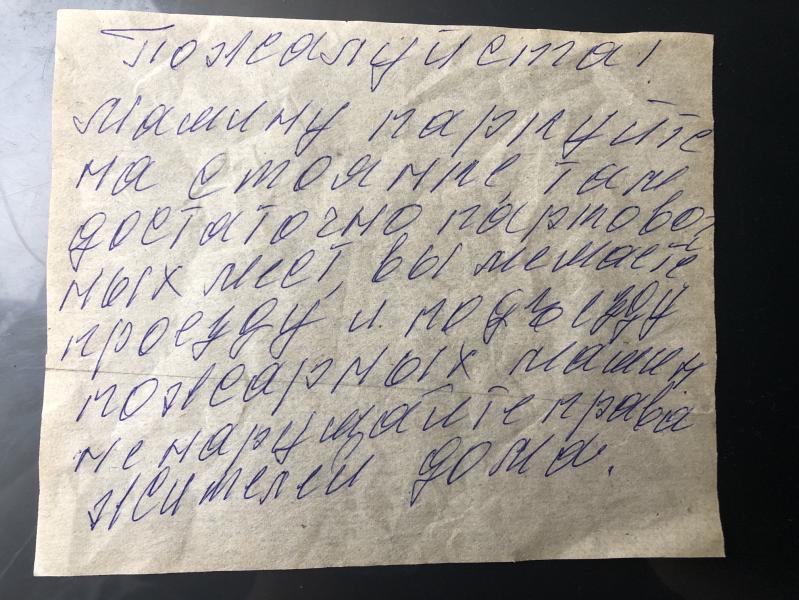 Пожалуйста!
Машину паркуйте
на стоянке, там
достаточно парково-
ных мест, вы мешаете
проезду и подъезду
пожарных машин
не нарущайте права
жителей дома.